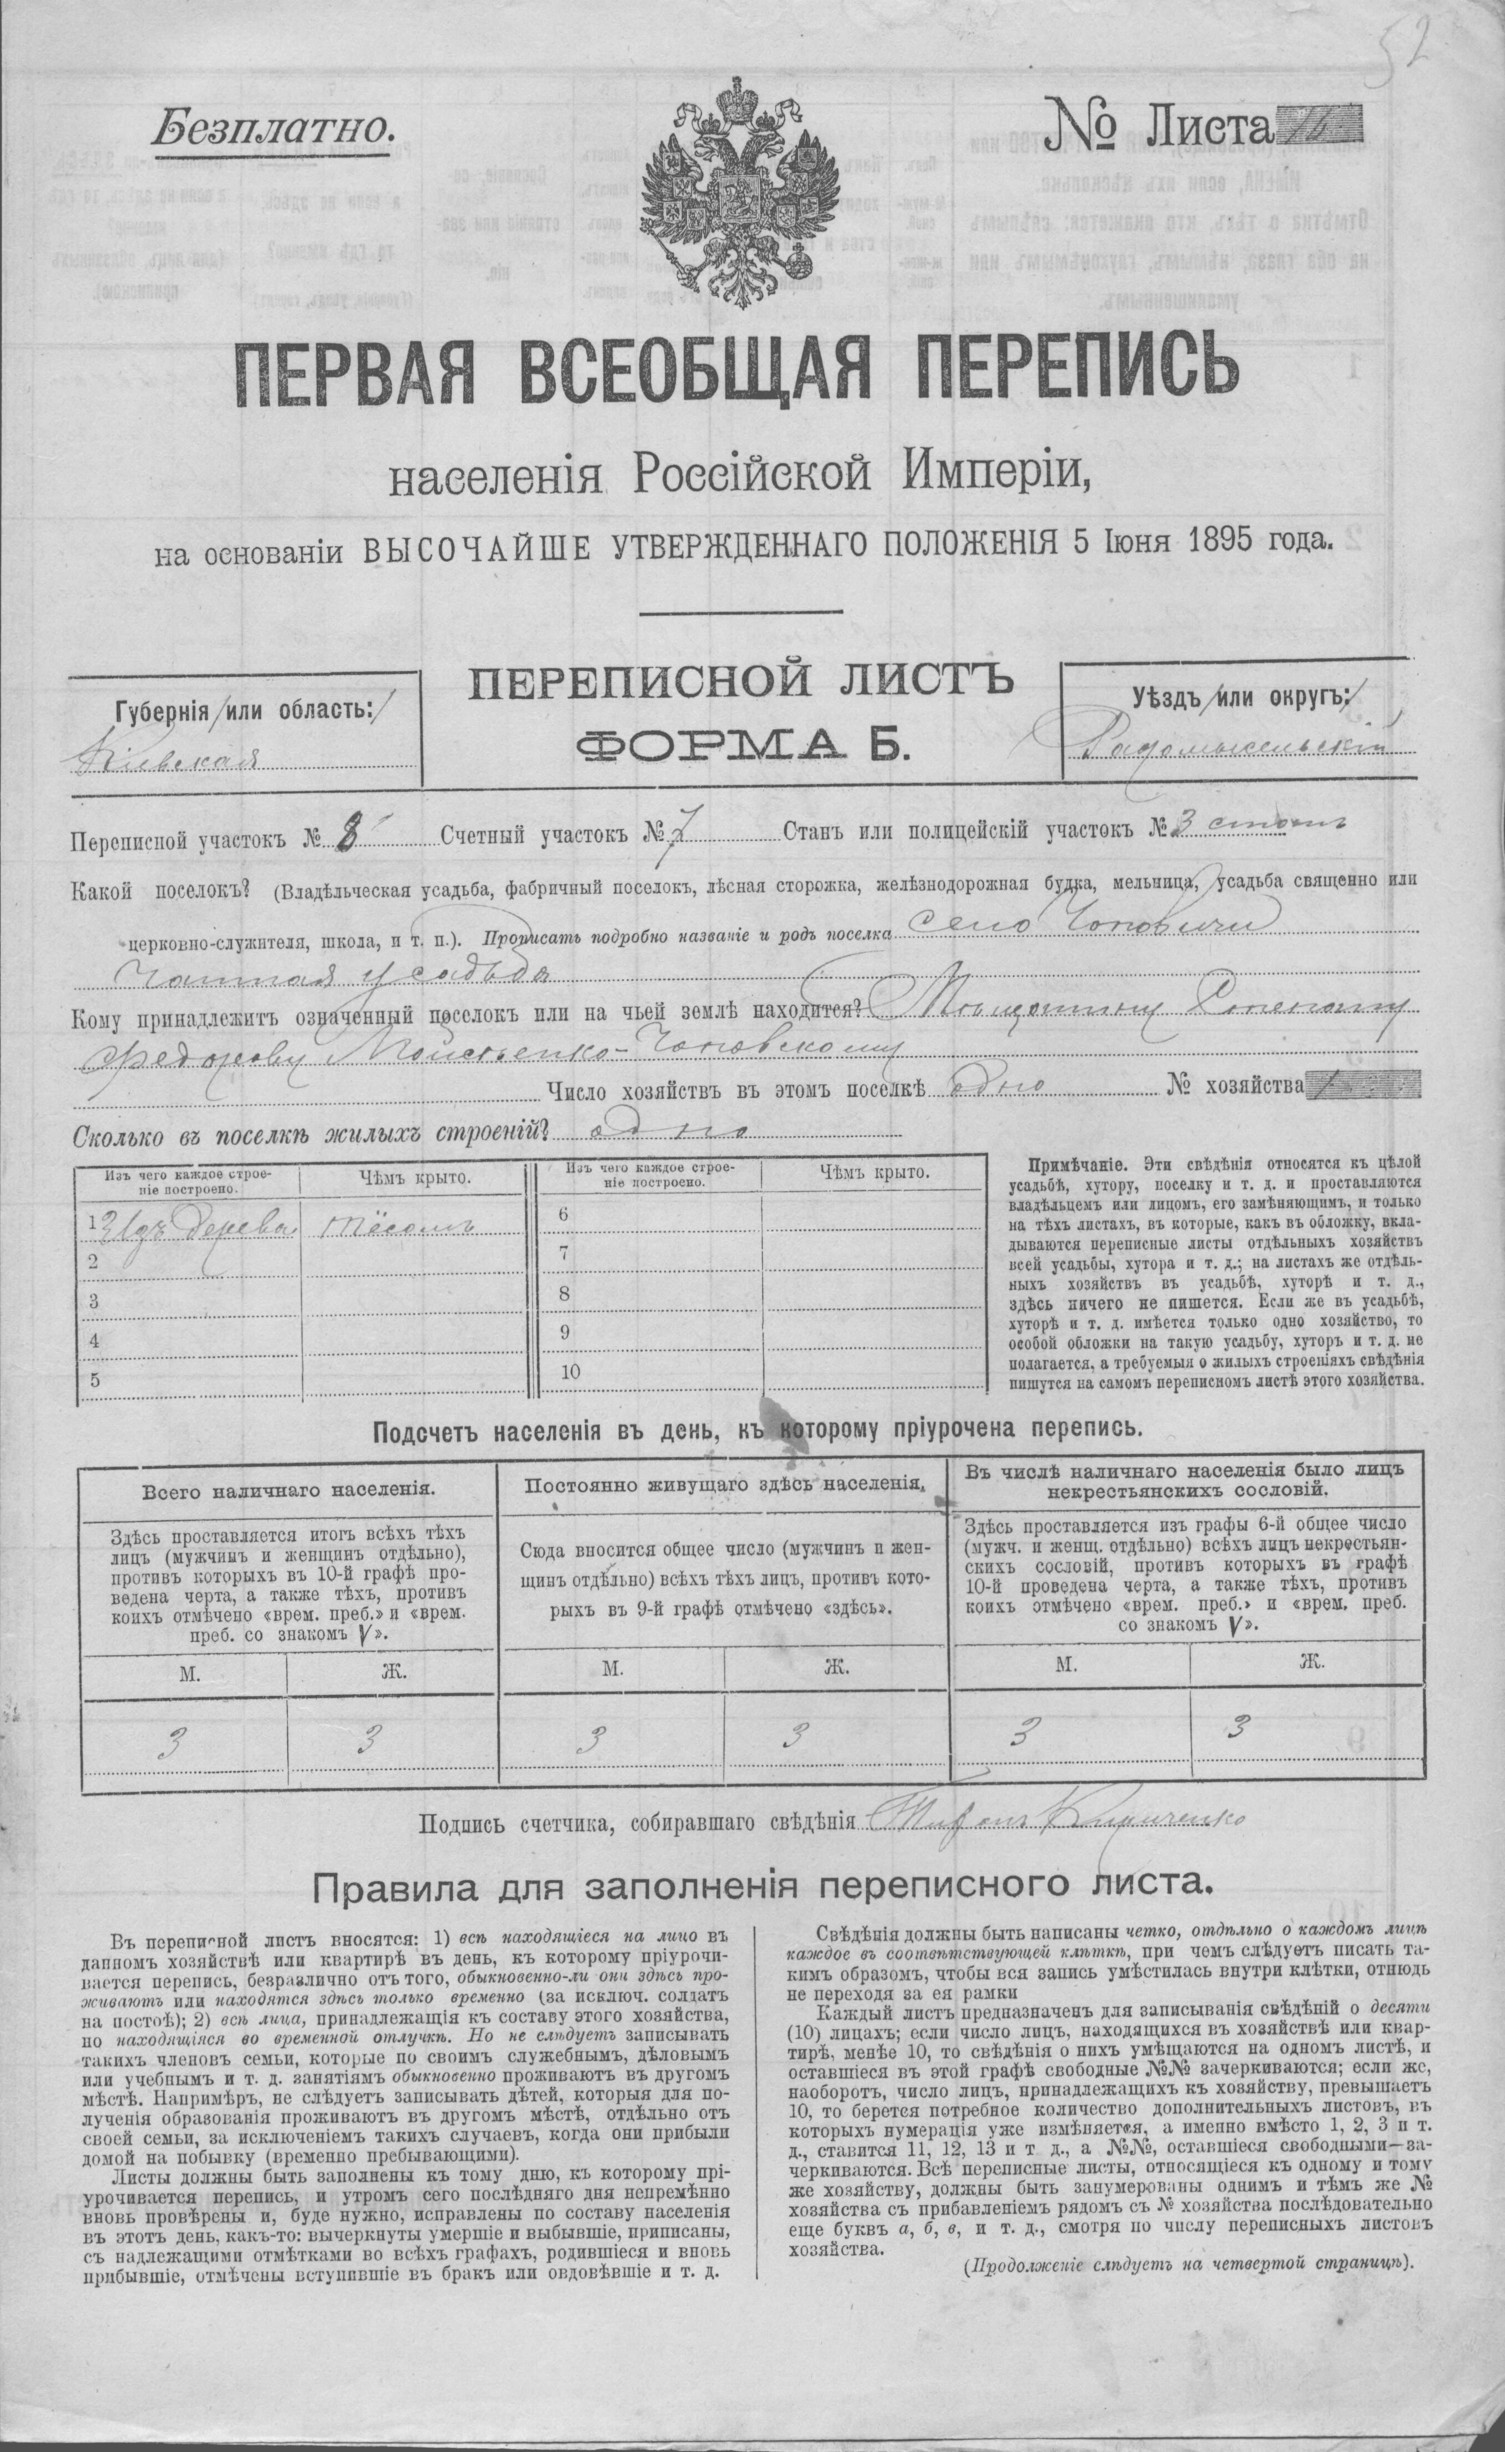 52
Безплатно.
№ Листа
ПЕРВАЯ ВСЕОБЩАЯ ПЕРЕПИСЬ
населенія Россійской Имперіи,
на основаніи ВЫСОЧАЙШЕ УТВЕРЖДЕННАГО ПОЛОЖЕНІЯ 5 Іюня 1895 года.
ПЕРЕПИСНОЙ ЛИСТЪ
ФОРМА Б.
Губернія /или область:/
Кіевская
Уѣздъ /или округъ:/
Радомысльскій
Переписной участокъ № 8 Счетный участокъ № 7 Станъ или полицейскій участокъ № 3 станъ
Какой поселокъ? (Владѣльческая усадьба, фабричный поселокъ, лѣсная сторожка, желѣзнодорожная будка, мельница, усадьба священно или
церковно-служителя, школа, и т. п.). Прописать подробно названіе и родъ поселка село Чоповичи
усадьба
Кому принадлежитъ означенный поселокъ или на чьей землѣ находится? Мѣщанину Степану
Федорову Мойсѣенко-Чоповскому
Число хозяйствъ въ этомъ поселкѣ одно № хозяйства 1
Сколько въ поселкѣ жилыхъ строеній? одно
Изъ чего каждое строе-
ніе построено.
Чѣмъ крыто.
Изъ чего каждое строе-
ніе построено.
Чѣмъ крыто.
1 Изъ дерева тёсомъ 6
2 7
3 8
4 9
5 10
Примѣчаніе. Эти свѣдѣнія относятся къ цѣлой
усадьбѣ, хутору, поселку и т. д. и проставляются
владѣльцемъ или лицомъ, его замѣняющимъ, и только
на тѣхъ листахъ, въ которые, какъ въ обложку, вкла-
дываются переписные листы отдѣльныхъ хозяйствъ
всей усадьбы, хутора и т. д.; на листахъ же отдѣль-
ныхъ хозяйствъ въ усадьбѣ, хуторѣ и т. д.,
здѣсь ничего не пишется. Если же въ усадьбѣ,
хуторѣ и т. д. имѣется только одно хозяйство, то
особой обложки на такую усадьбу, хуторъ и т. д. не
полагается, а требуемыя о жилыхъ строеніяхъ свѣдѣнія
пишутся на самомъ переписномъ листѣ этого хозяйства.
Подсчетъ населенія въ день, къ которому пріурочена перепись.
Всего наличнаго населенія.
Здѣсь проставляется итогъ всѣхъ тѣхъ
лицъ (мужчинъ и женщинъ отдѣльно),
противъ которыхъ въ 10-й графѣ про-
ведена черта, а также тѣхъ, противъ
коихъ отмѣчено «врем. преб.» и «врем.
преб. со знакомъ V».
М. Ж.
3 3
Постоянно живущаго здѣсь населенія.
Сюда вносится общее число (мужчинъ и жен-
щинъ отдѣльно) всѣхъ тѣхъ лицъ, противъ кото-
рыхъ въ 9-й графѣ отмѣчено «здѣсь».
М. Ж.
3 3
Въ числѣ наличнаго населенія было лицъ
некрестьянскихъ сословій.
Здѣсь проставляется изъ графы 6-й общее число
(мужч. и женщ. отдѣльно) всѣхъ лицъ некрестьян-
скихъ сословій, противъ которыхъ въ графѣ
10-й проведена черта, а также тѣхъ, противъ
коихъ отмѣчено «врем. преб.» и «врем. преб.
со знакомъ V».
М. Ж.
3 3
Подпись счетчика, собиравшаго свѣдѣнія Кириченко
Правила для заполненія переписного листа.
Въ переписной листъ вносятся: 1) всѣ находящіеся на лицо въ
данномъ хозяйствѣ или квартирѣ въ день, къ которому пріурочи-
вается перепись, безразлично отъ того, обыкновенно-ли они здѣсь про-
живаютъ или находятся здѣсь только временно (за исключ. солдатъ
на постоѣ); 2) всѣ лица, принадлежащія къ составу этого хозяйства,
но находящіяся во временной отлучкѣ. Но не слѣдуетъ записывать
такихъ членовъ семьи, которые по своимъ служебнымъ, дѣловымъ
или учебнымъ и т. д. занятіямъ обыкновенно проживаютъ въ другомъ
мѣстѣ. Напримѣръ, не слѣдуетъ записывать дѣтей, которыя для по-
лученія образованія проживаютъ въ другомъ мѣстѣ, отдѣльно отъ
своей семьи, за исключеніемъ такихъ случаевъ, когда они прибыли
домой на побывку (временно пребывающими).
Листы должны быть заполнены къ тому дню, къ которому прі-
урочивается перепись, и утромъ сего послѣдняго дня непремѣнно
вновь провѣрены и, буде нужно, исправлены по составу населенія
въ этотъ день, какъ-то: вычеркнуты умершіе и выбывшіе, приписаны,
съ надлежащими отмѣтками во всѣхъ графахъ, родившіеся и вновь
прибывшіе, отмѣчены вступившіе въ бракъ или овдовѣвшіе и т. д.
Свѣдѣнія должны быть написаны четко, отдѣльно о каждомъ лицѣ
каждое въ соотвѣтствующей клѣткѣ, при чемъ слѣдуетъ писать та-
кимъ образомъ, чтобы вся запись умѣстилась внутри клѣтки, отнюдь
не переходя за ея рамки
Каждый листъ предназначенъ для записыванія свѣдѣній о десяти
(10) лицахъ; если число лицъ, находящихся въ хозяйствѣ или квар-
тирѣ, менѣе 10, то свѣдѣнія о нихъ умѣщаются на одномъ листѣ, и
оставшіеся въ этой графѣ свободные №№ зачеркиваются; если же,
наоборотъ, число лицъ, принадлежащихъ къ хозяйству, превышаетъ
10, то берется потребное количество дополнительныхъ листовъ, въ
которыхъ нумерація уже измѣняется, а именно вмѣсто 1, 2, 3 и т.
д., ставится 11, 12, 13 и т д., а №№, оставшіеся свободными—за-
черкиваются. Всѣ переписные листы, относящіеся къ одному и тому
же хозяйству, должны быть занумерованы однимъ и тѣмъ же №
хозяйства съ прибавленіемъ рядомъ съ № хозяйства послѣдовательно
еще буквъ а, б, в, и т. д., смотря по числу переписныхъ листовъ
хозяйства.
(Продолженіе слѣдуетъ на четвертой страницѣ).